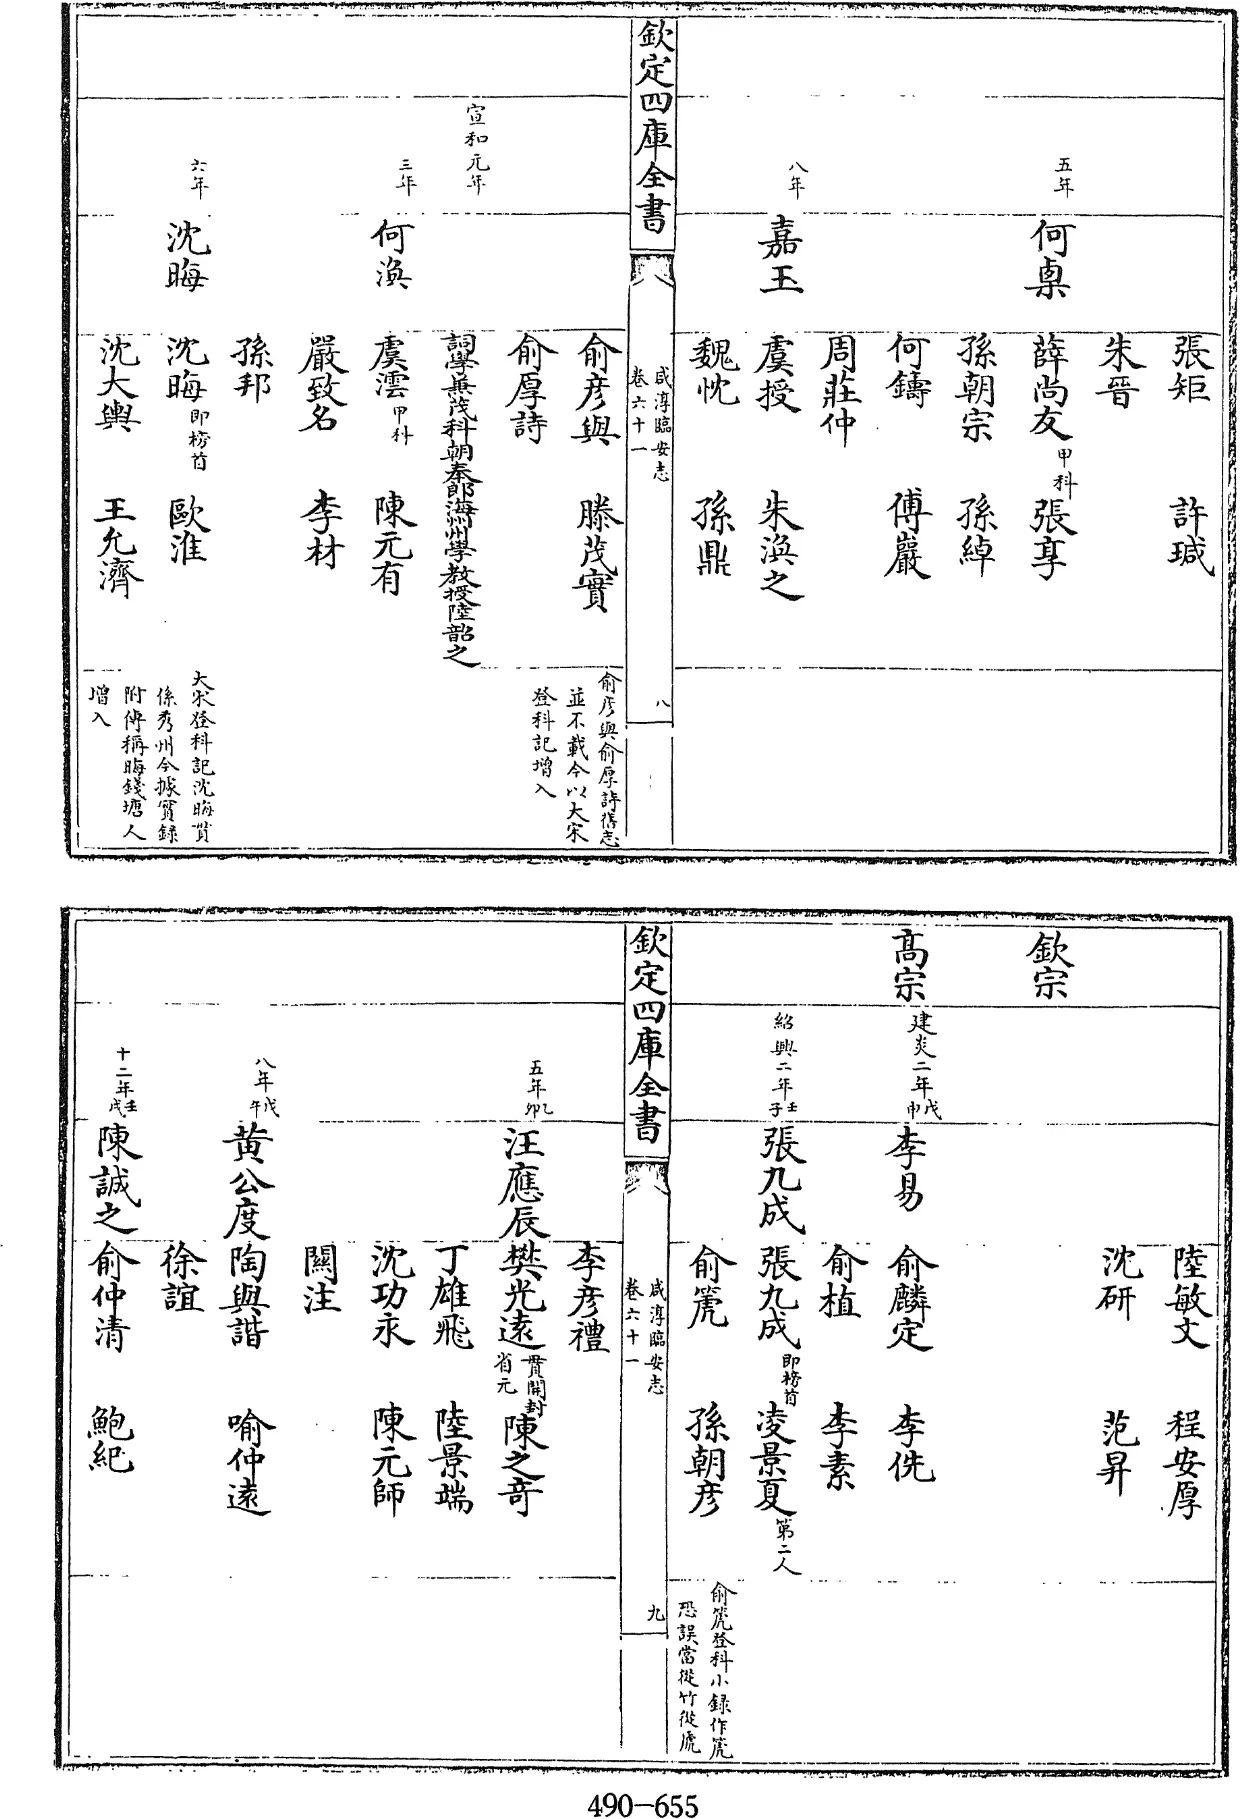 張矩 許瑊
朱晉
五年 何㮚 薛尚友甲科 張享
孫朝宗 孫綽
何鑄 傅巖
周莊仲
八年 嘉王 虞授 朱渙之
魏忱 孫鼎
欽定四庫全書
咸淳臨安志
卷六十一
八
俞彥與 滕茂實 俞彥與俞厚詩舊志
並不載今以大宋
俞厚詩 登科記增入
宣和元年 詞學兼茂科朝奉郎海州學教授陸韶之
三年 何渙 虞澐甲科 陳元有
嚴致名 李材
孫邦
六年 沈晦 沈晦即榜首 歐淮 大宋登科記沈晦貫
係秀州今據實録
沈大輿 王允濟 附傳稱晦錢塘人
增入
陸敏文 程安厚
沈研 范昇
欽宗
高宗 建炎二年戊申 李易 俞麟定 李侁
俞植 李素
紹興二年壬子 張九成 張九成即榜首 凌景夏第二人
俞箎 孫朝彥 俞箎登科小録作箎
恐誤當從竹從虒
欽定四庫全書
咸淳臨安志
卷六十一
九
李彥禮
五年乙卯 汪應辰 樊光遠貫開封省元 陳之奇
丁雄飛 陸景端
沈功永 陳元師
關注
八年戊午 黄公度 陶與諧 喻仲遠
徐誼
十二年壬戌 陳誠之 俞仲清 鮑紀
490-655